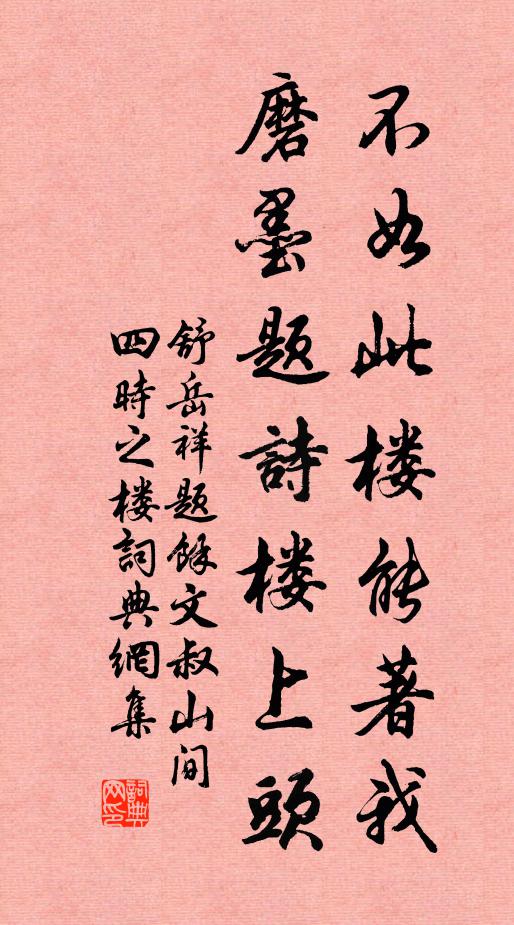 不如此楼能著我
磨墨题詩楼上頭
舒岳祥题馀文叔山间
四時之楼詞典網集
詞典網印